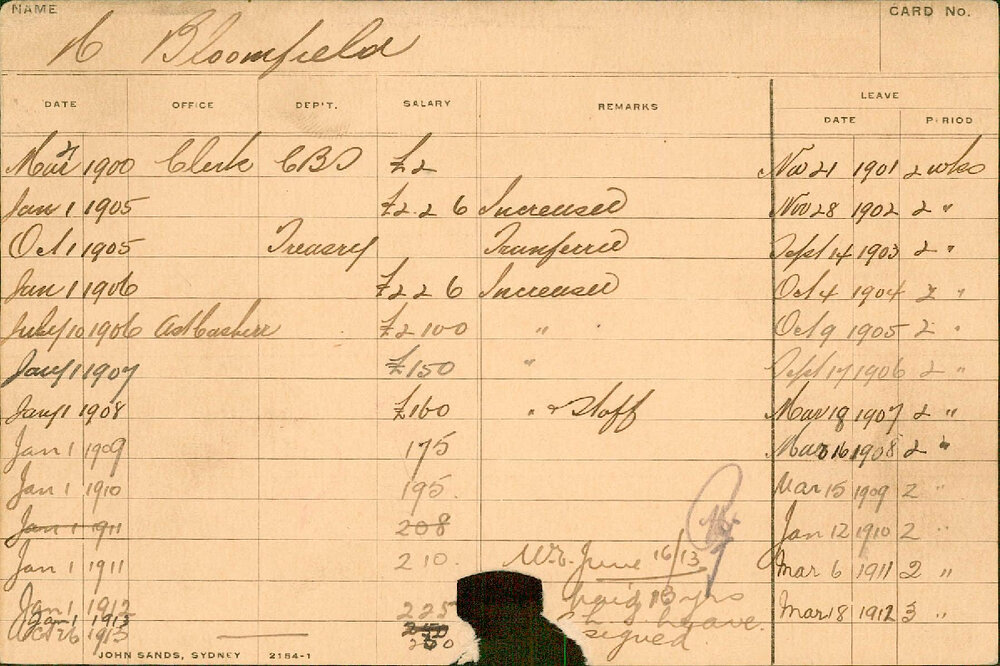 NAME CARD No.
H Bloomfield
DATE OFFICE DEP'T. SALARY REMARKS LEAVE
DATE PERIOD
Mar 1900 Clerk CBD £2 Nov 21 1901 2 wks
Jan 1 1905 £2 2 6 Increased Nov 28 1902 2 "
Oct 1 1905 Treasury Tranferred Sept 14 1903 2 "
Jan 1 1906 £2 2 6 Increased Oct 4 1904 2 "
July 10 1906 Ast Cashier £2 10 0 " Oct 9 1905 2 "
Jany 1 1907 £150 " Sept 17 1906 2 "
Jany 1 1908 £160 " & Staff Mar 18 1907 2 "
Jan 1 1909 175 Mar 16 1908 2 "
Jan 1 1910 195. Mar 15 1909 2 "
Jan 1 1911 208 Jan 12 1910 2 "
Jan 1 1911 210. June 16/13 Mar 6 1911 2 "
Jan 1 1912 225 paid 13 yrs Mar 18 1912 3 "
Jan 1 1913 250 L. S. Leave.
Oct 26 1913 250 signed
JOHN SANDS, SYDNEY 2154-1